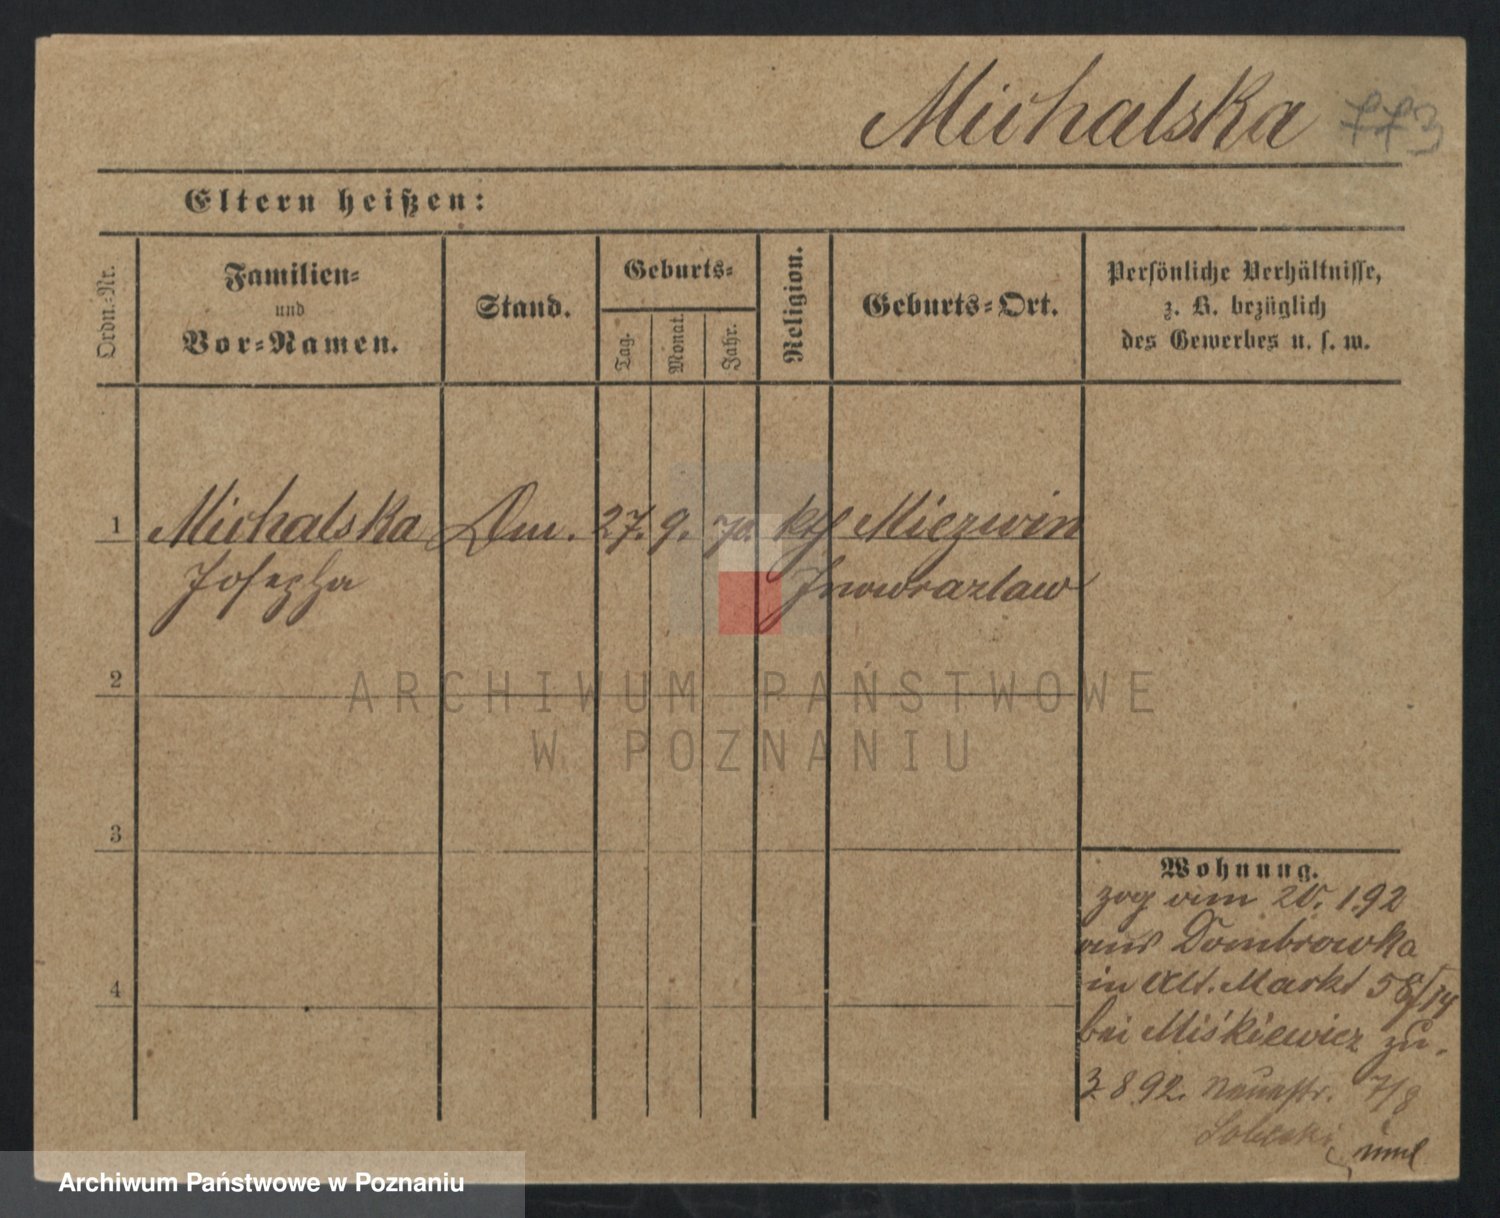 Michalska 773
Eltern heißen:
Ordn.-Nr.
Familien-
und
Vor-Namen.
Stand.
Geburts-
Tag.
Monat.
Jahr.
Religion.
Geburts-Ort.
Persönliche Verhältnisse,
z. B. bezüglich
des Gewerbes u. s. w.
1 Michalska Dm. 27. 9. 70. kth Miezwin
Josepha Inowrazlaw
2
3
4
Wohnung.
zog am 20. 1.92
aus Dombrowka
in Alt. Markt 58/
bei Miśkiewicz zu.
3.8.92. Neuestr. 7/8
ARCHIWUM PAŃSTWOWE
W POZNANIU
Archiwum Państwowe w Poznaniu